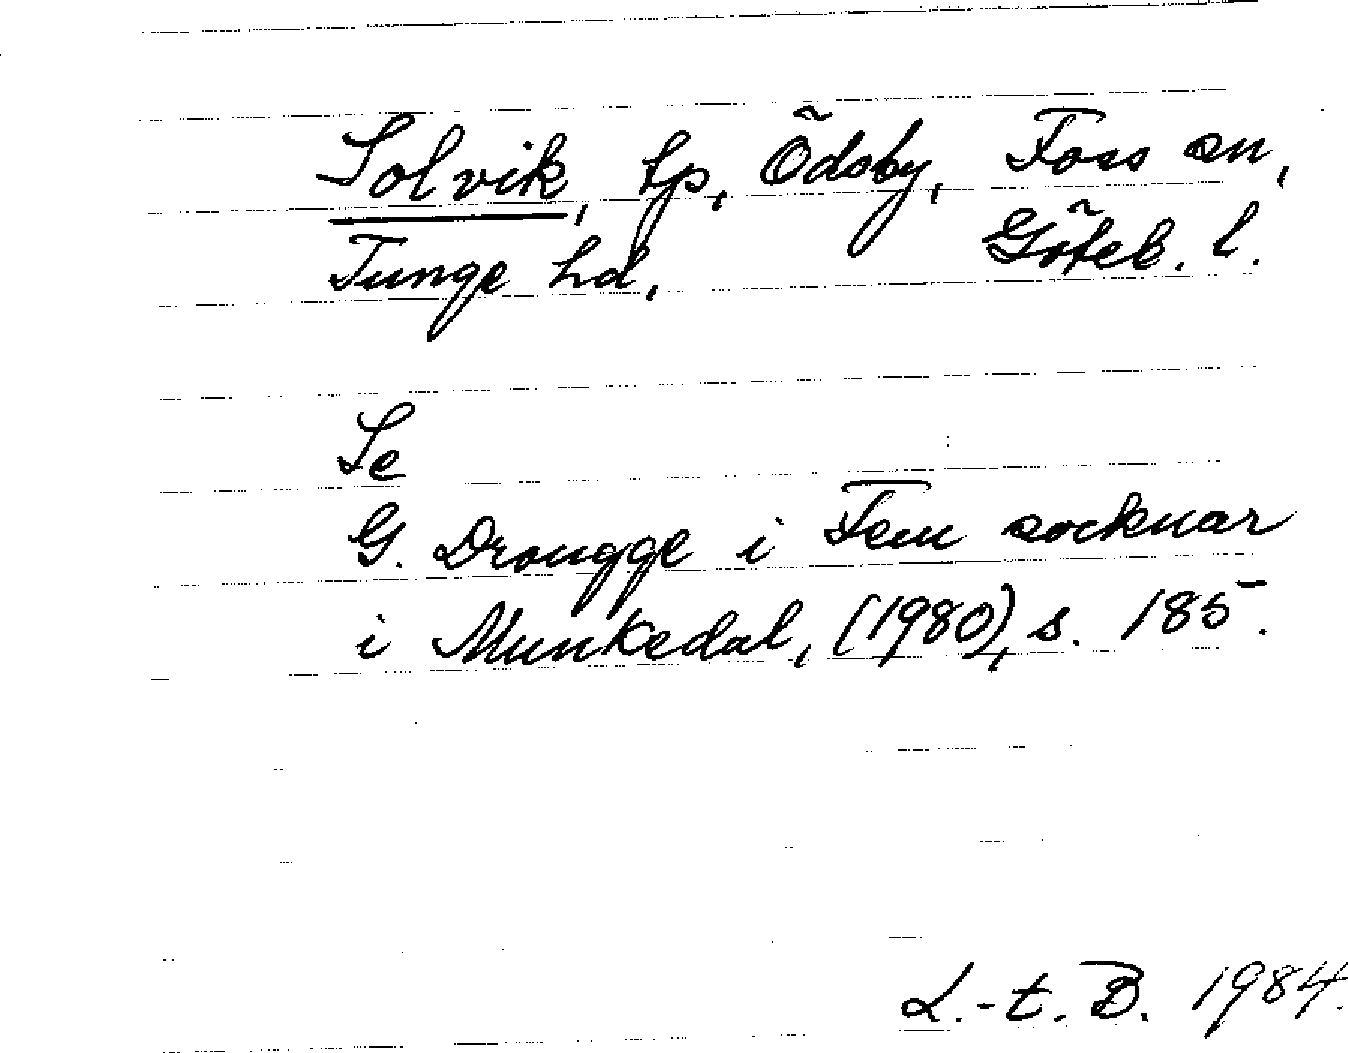 Solvik, tp, Ödsby, Foss sn,
Tunge hd, Göteb. l.
Se
G. Drougge i Fem socknar
i Munkedal, (1980), s. 185.
L.-t. B. 1984.